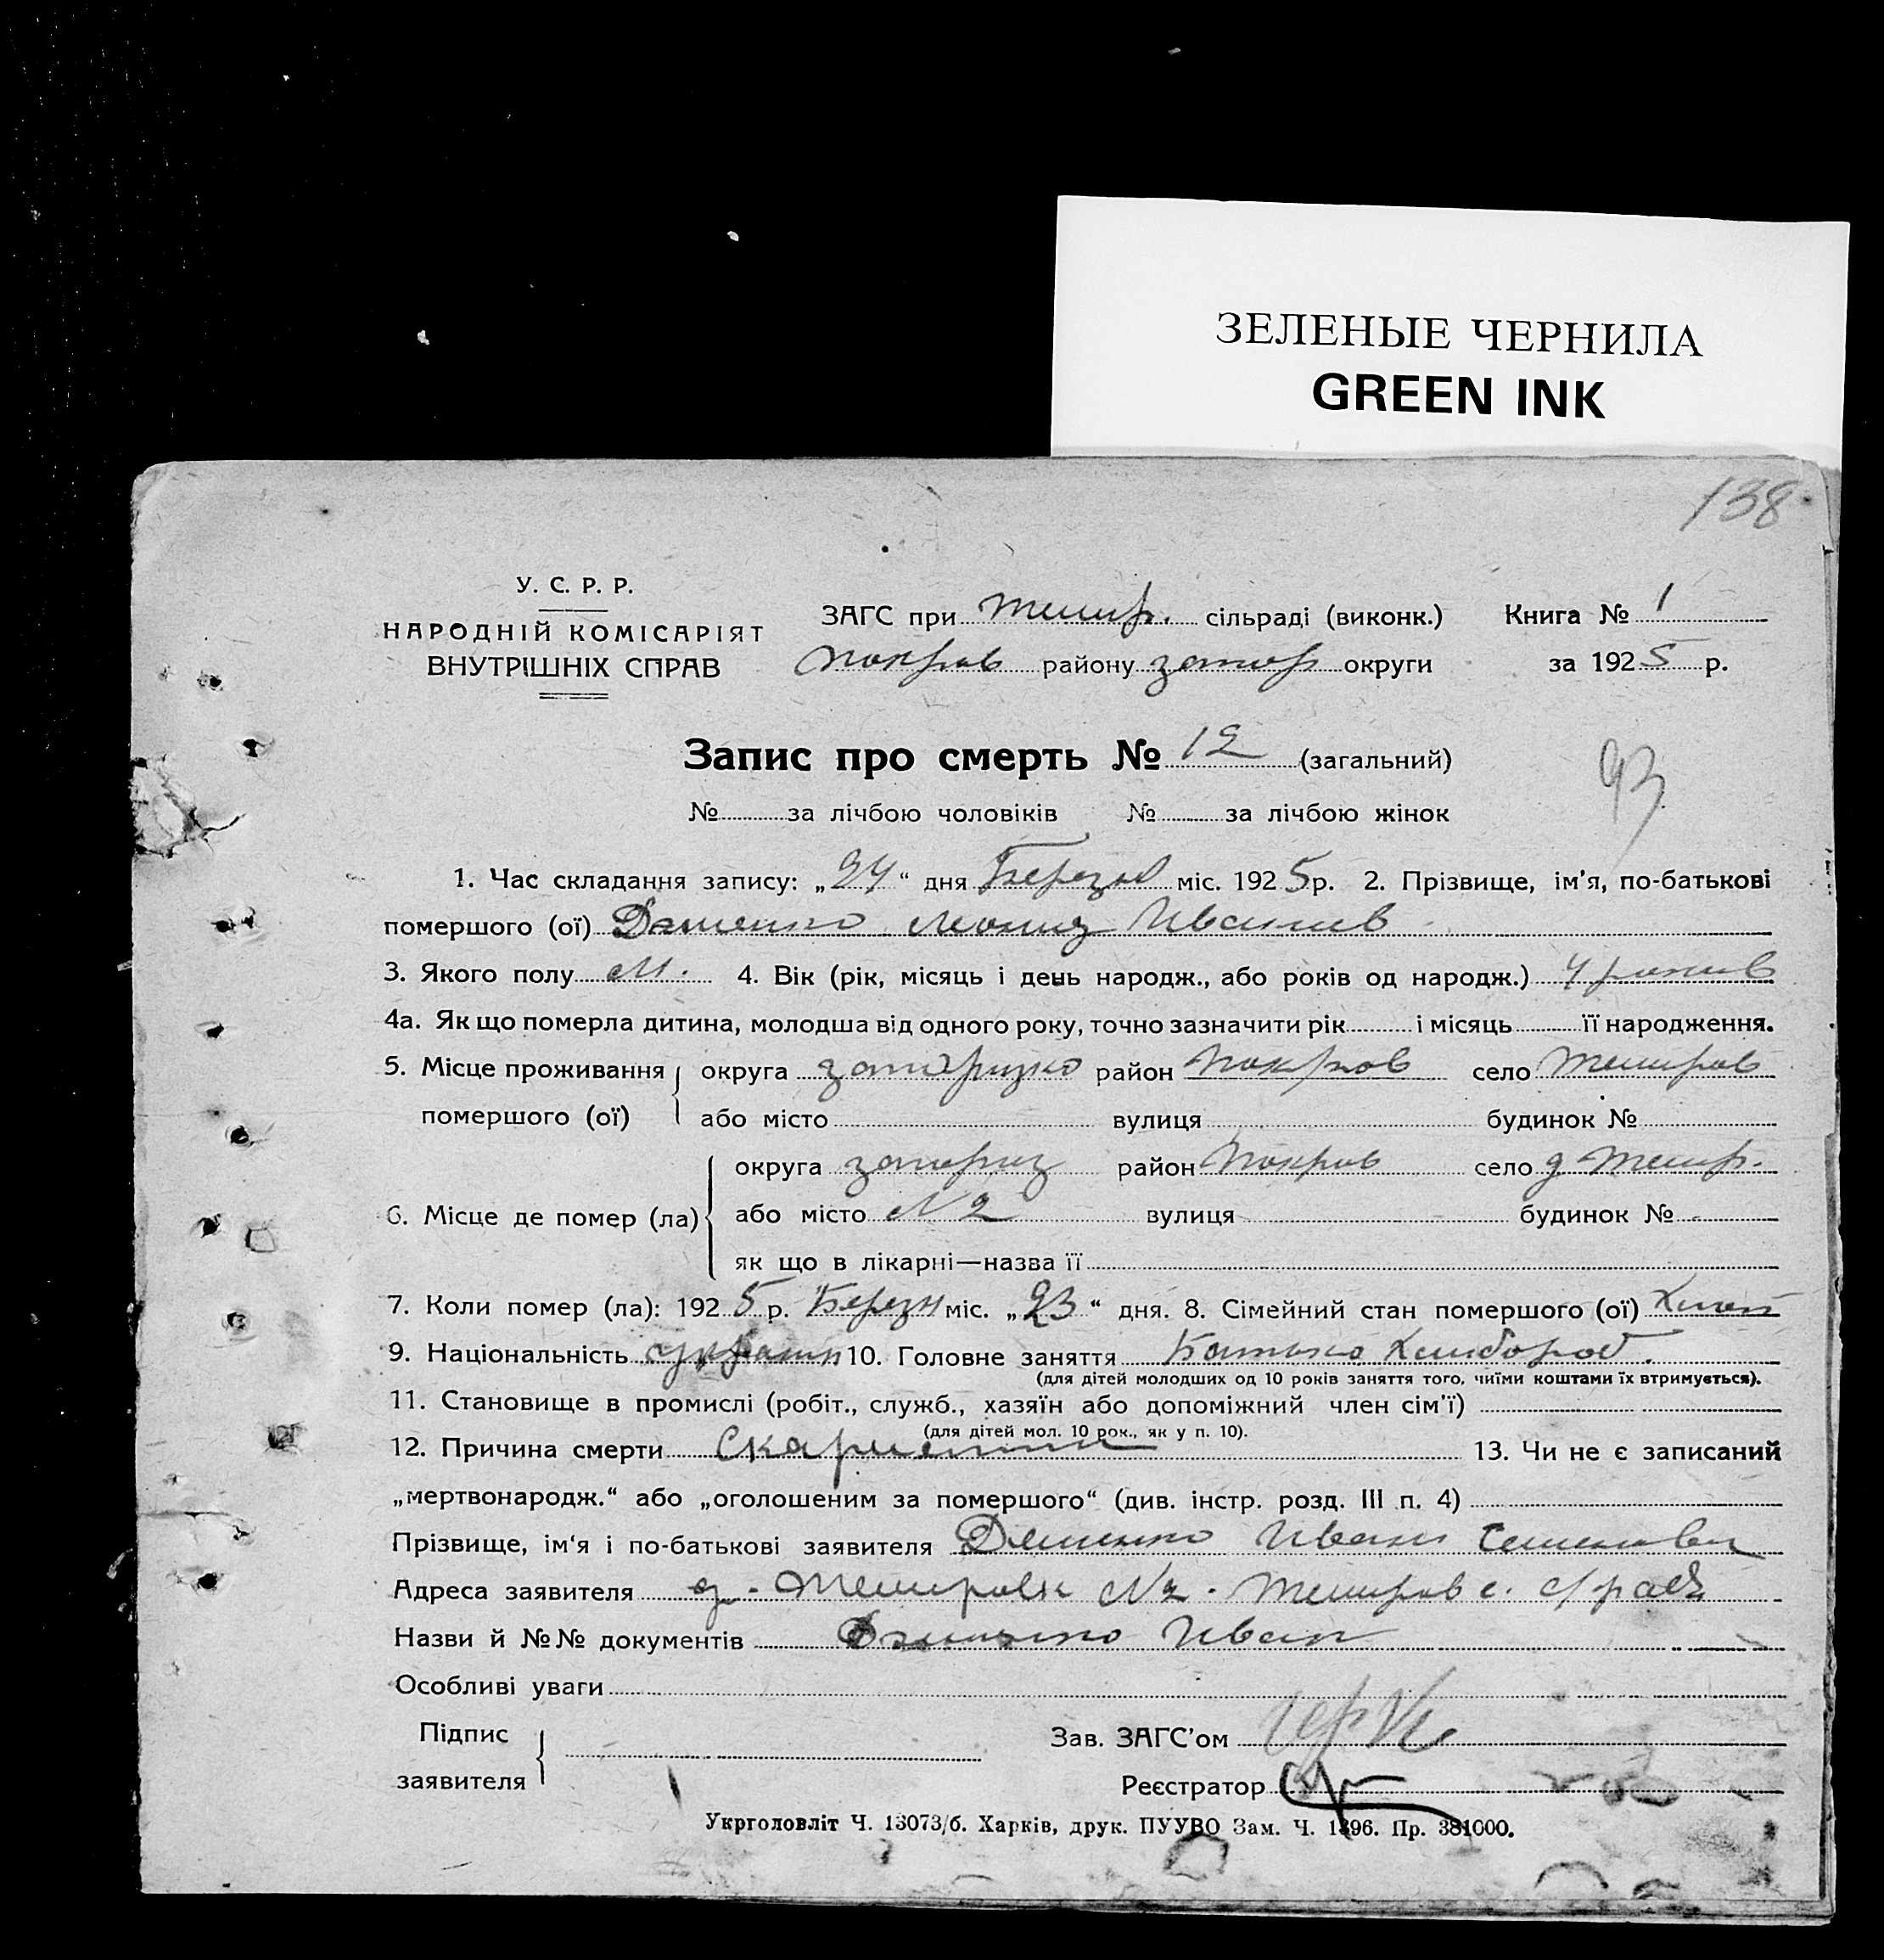 ЗЕЛЕНЫЕ ЧЕРНИЛА
GREEN INK
138
У. С. Р. Р.
НАРОДНІЙ КОМІСАРІЯТ
ВНУТРІШНІХ СПРАВ
ЗАГС при Темир. сільраді (виконк.) Книга № 1
Покров району запор округи за 1925 р.
Запис про смерть № 12 (загальний)
93
№ за лічбою чоловіків № за лічбою жінок
1. Час складання запису: „24“ дня Березня міс. 1925 р. 2. Прізвище, ім'я, по-батькові
помершого (ої) Иванив
3. Якого полу М. 4. Вік (рік, місяць і день народж., або років од народж.) 4 рокив
4а. Як що померла дитина, молодша від одного року, точно зазначити рік і місяць її народження.
5. Місце проживання округа запоризко район Покров село Темиров
помершого (ої) або місто вулиця будинок №
округа запориз район Покров село д Темир.
6. Місце де помер (ла) або місто N 2 вулиця будинок №
як що в лікарні—назва її
7. Коли помер (ла): 1925 р. Березн міс. „23“ дня. 8. Сімейний стан помершого (ої)
9. Національність украин 10. Головне заняття Батько Хлибороб.
(для дітей молодших од 10 років заняття того, чиїми коштами їх втримується).
11. Становище в промислі (робіт., служб., хазяїн або допоміжний член сім'ї)
(для дітей мол. 10 рок., як у п. 10).
12. Причина смерти 13. Чи не є записаний
„мертвонародж.“ або „оголошеним за помершого“ (див. інстр. розд. III п. 4)
Прізвище, ім'я і по-батькові заявителя Иван
Адреса заявителя д. N 2. Темиров с.
Назви й №№ документів Иван
Особливі уваги
Підпис
заявителя
Зав. ЗАГС'ом
Реєстратор
Укрголовліт Ч. 13073/б. Харків, друк. ПУУВО Зам. Ч. 1396. Пр. 381000.